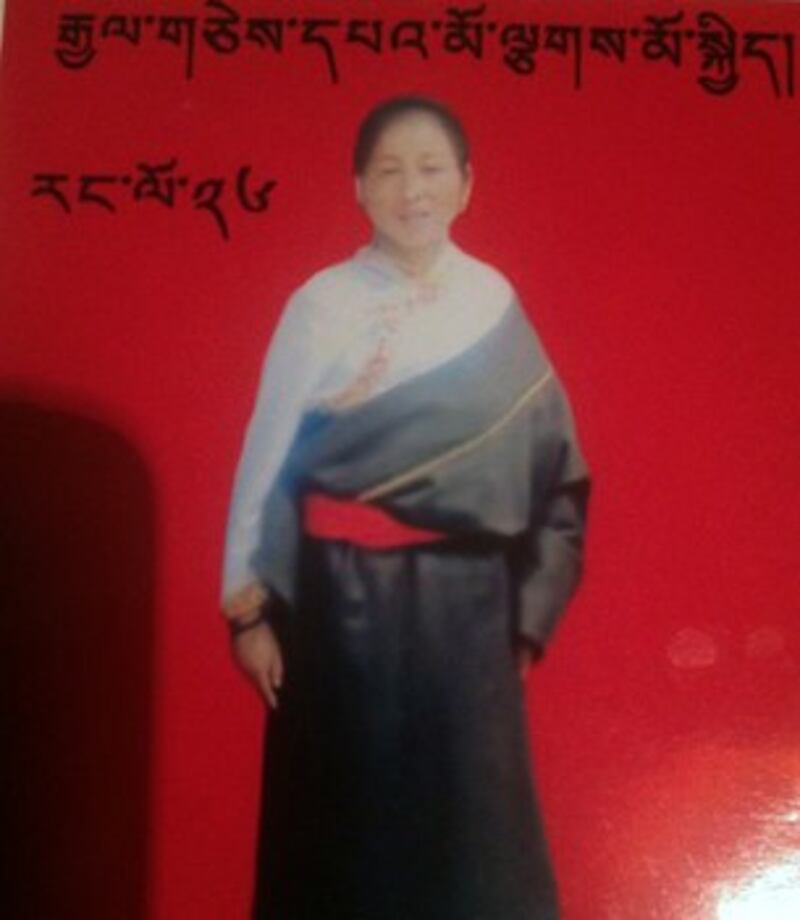 རྒྱལ་གཅེས་དཔའ་མོ་ལྕགས་མོ་སྐྱིད།
རང་ལོ་༢༦